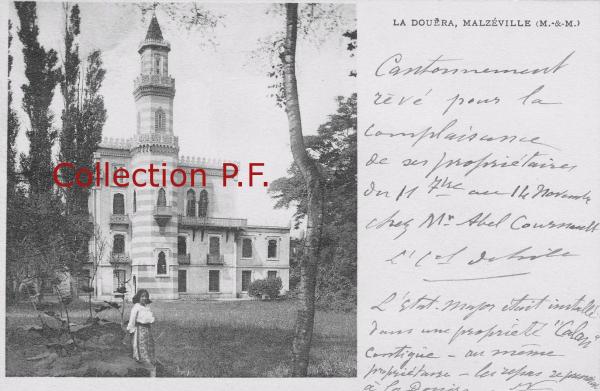 LA DOUËRA, MALZÉVILLE (M.-&-M.)
Collection P.F.
Cantonnement
rêvé pour la
complaisance
de ses propriétaires
du 11 au 14 Novembre
chez Mr Abel Cournault
L'Etat-Major était installé
dans une propriété
Contigue - au même
propriétaire - les repas se
à la